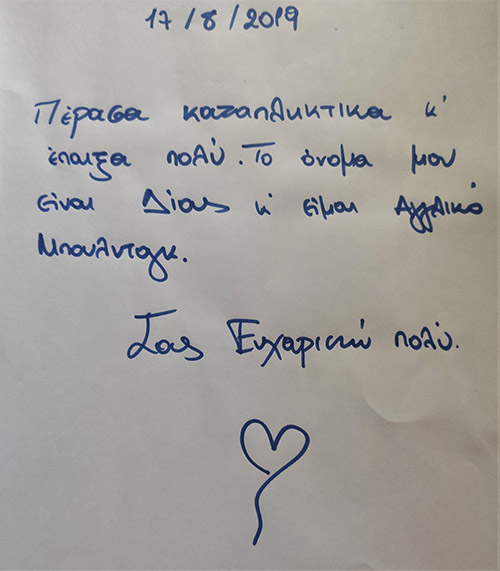 17/8/2019
Πέρασα καταπληκτικά κ'
έπαιξα πολύ. Το όνομα μου
είναι Δίας κ' είμαι Αγγλικό
Μπουλντογκ.
Σας Ευχαριστώ πολύ.